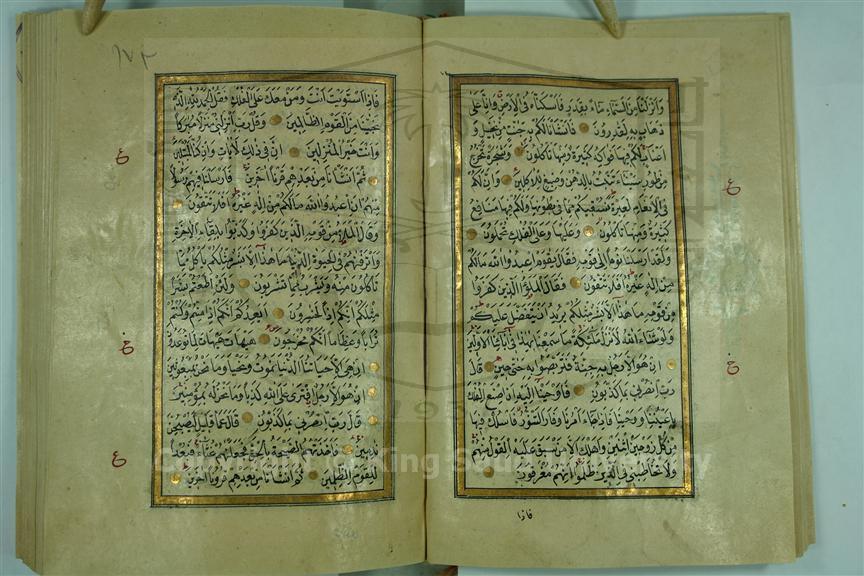 وانزلنا من السماء ماء بقدر فاسكناه في الارض وانا على
ذهاب به لقدرون فانشانا لكم به جنت من نخيل و
اعناب لكم فيها فواكه كثيرة ومنها تاكلون وشجرة تخرج
من طور سيناء تنبت بالدهن وصبغ للاكلين وان لكم
في الانعام لعبرة نسقيكم مما في بطونها ولكم فيها منافع
كثيرة ومنها تاكلون وعليها وعلى الفلك تحملون
ولقد ارسلنا نوحا الى قومه فقال يقوم اعبدوا الله مالكم
من اله غيره افلا تتقون فقال الملؤا الذين كفروا
من قومه ما هذا الا بشر مثلكم يريد ان يتفضل عليكم
ولو شاء الله لانزل ملئكة ما سمعنا بهذا في ابائنا الاولين
ان هو الا رجل به جنة فتربصوا به حتى حين قال
رب انصرني بما كذبون فاوحينا اليه ان اصنع الفلك
باعيننا ووحينا فاذا جاء امرنا وفار التنور فاسلك فيها
من كل زوجين اثنين واهلك الا من سبق عليه القول منهم
ولا تخاطبني في الذين ظلموا انهم مغرقون
فاذا
ع
خ
١٧٣
فاذا استويت انت ومن معك على الفلك فقل الحمد لله الذي
نجينا من القوم الظالمين وقل رب انزلني منزلا مباركا
وانت خير المنزلين ان في ذلك لايات وان كنا لمبتلين
ثم انشانا من بعدهم قرنا اخرين فارسلنا فيهم رسولا
منهم ان اعبدوا الله مالكم من اله غيره افلا تتقون
وقال الملا من قومه الذين كفروا وكذبوا بلقاء الاخرة
واترفنهم في الحيوة الدنيا ما هذا الا بشر مثلكم ياكل مما
تاكلون منه ويشرب مما تشربون ولئن اطعتم بشرا
مثلكم انكم اذا لخسرون ايعدكم انكم اذا متم وكنتم
ترابا وعظاما انكم مخرجون هيهات هيهات لما توعدون
ان هي الا حياتنا الدنيا نموت ونحيا وما نحن بمبعوثين
ان هو الا رجل افترى على الله كذبا وما نحن له بمؤمنين
قال رب انصرني بما كذبون قال عما قليل ليصبحن
نادمين فاخذتهم الصيحة بالحق فجعلناهم غثاء فبعدا
للقوم الظلمين ثم انشانا من بعدهم قرونا اخرين
ع
خ
ع
Copyright © King Saud University